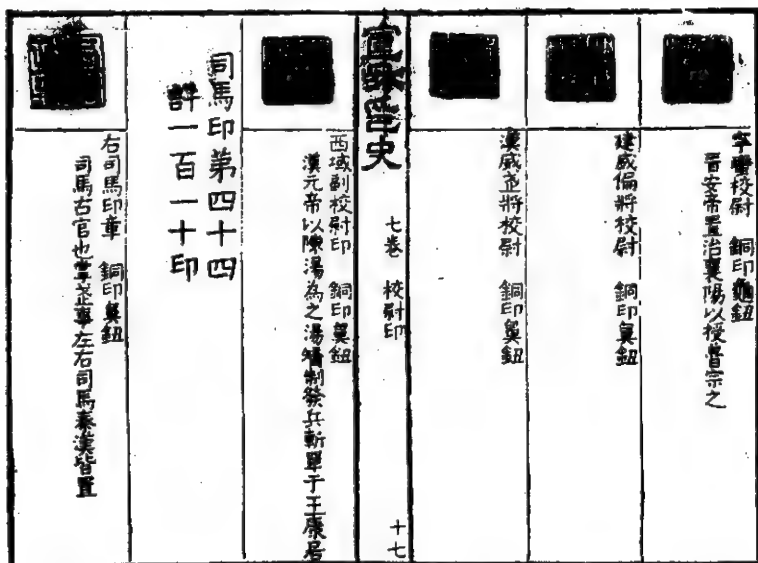 寧蠻校尉　銅印龜鈕
晉安帝置治襄陽以授魯宗之
建威偏將校尉　銅印鼻鈕
漢威虎將校尉　銅印鼻鈕
宣和印史
七卷　校尉印
十七
西域副校尉印　銅印鼻鈕
漢元帝以陳湯為之湯矯制發兵斬單于王康居
司馬印第四十四
計一百一十印
右司馬印章　銅印鼻鈕
司馬古官也掌武事左右司馬秦漢皆置